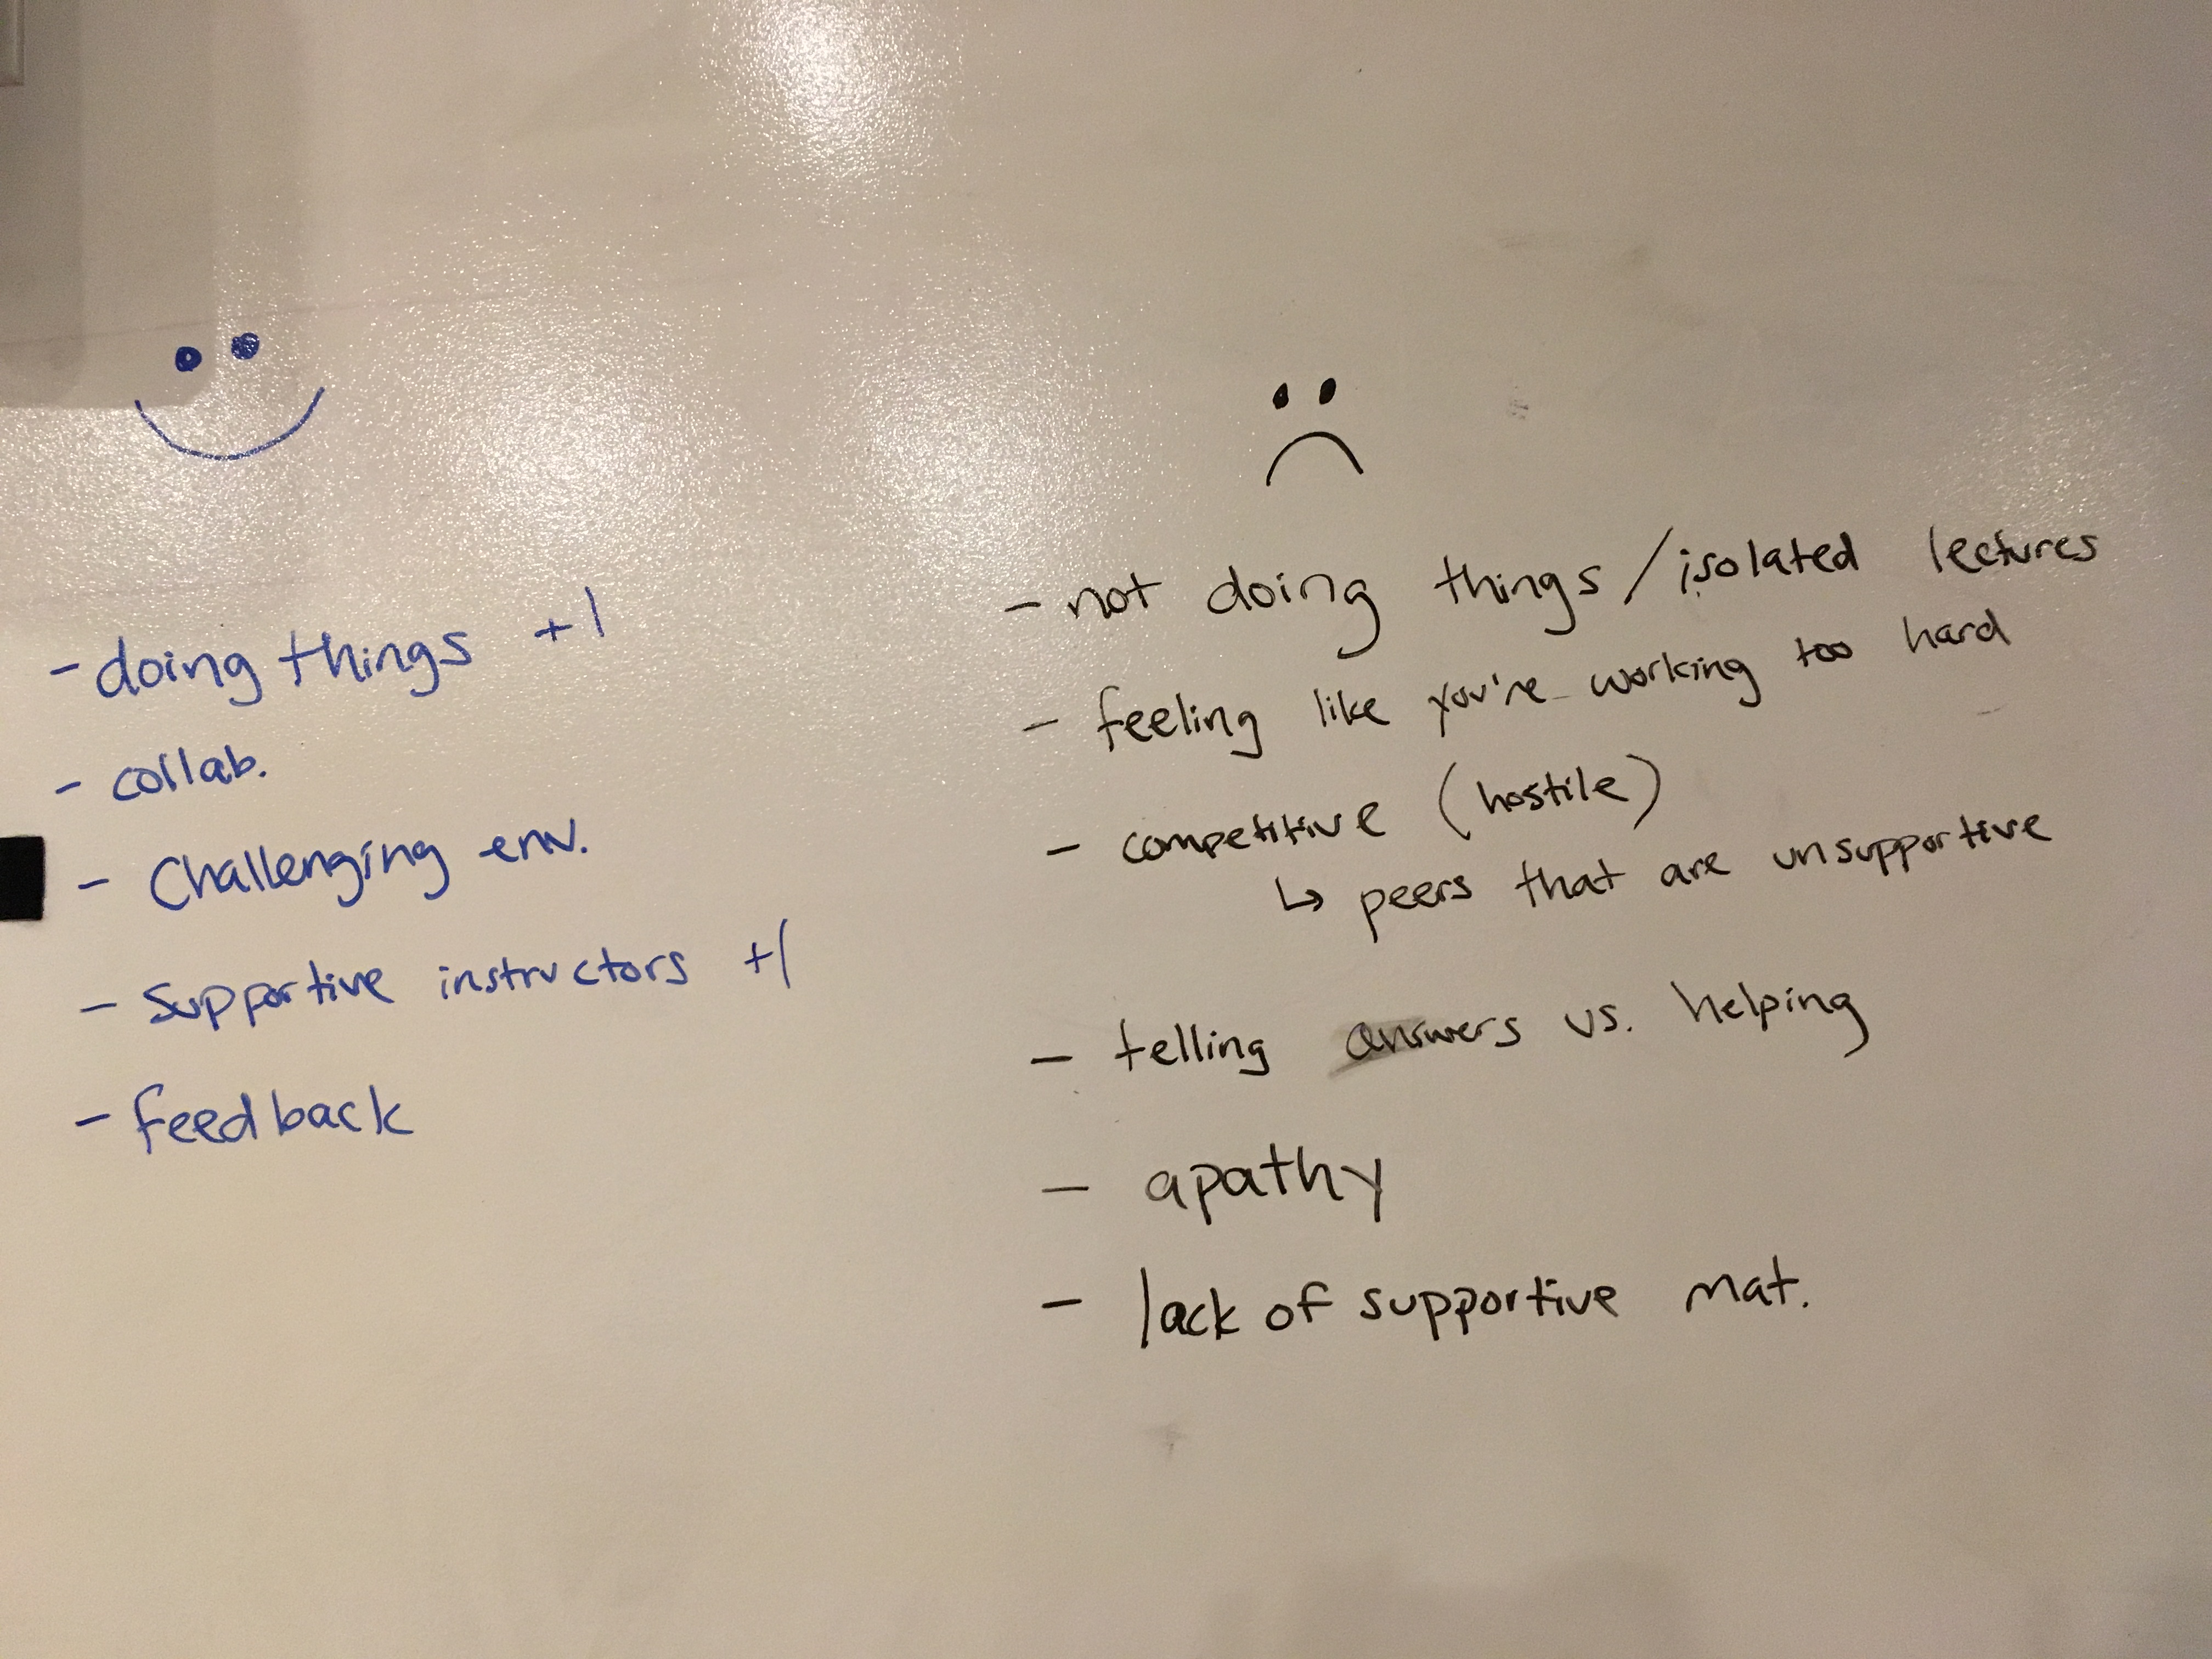 - doing things +1
- collab.
- Challenging env.
- Supportive instructors +1
- feedback
- not doing things / isolated lectures
- feeling like you're working too hard
- competitive (hostile)
↳ peers that are unsupportive
- telling answers vs. helping
- apathy
- lack of supportive mat.